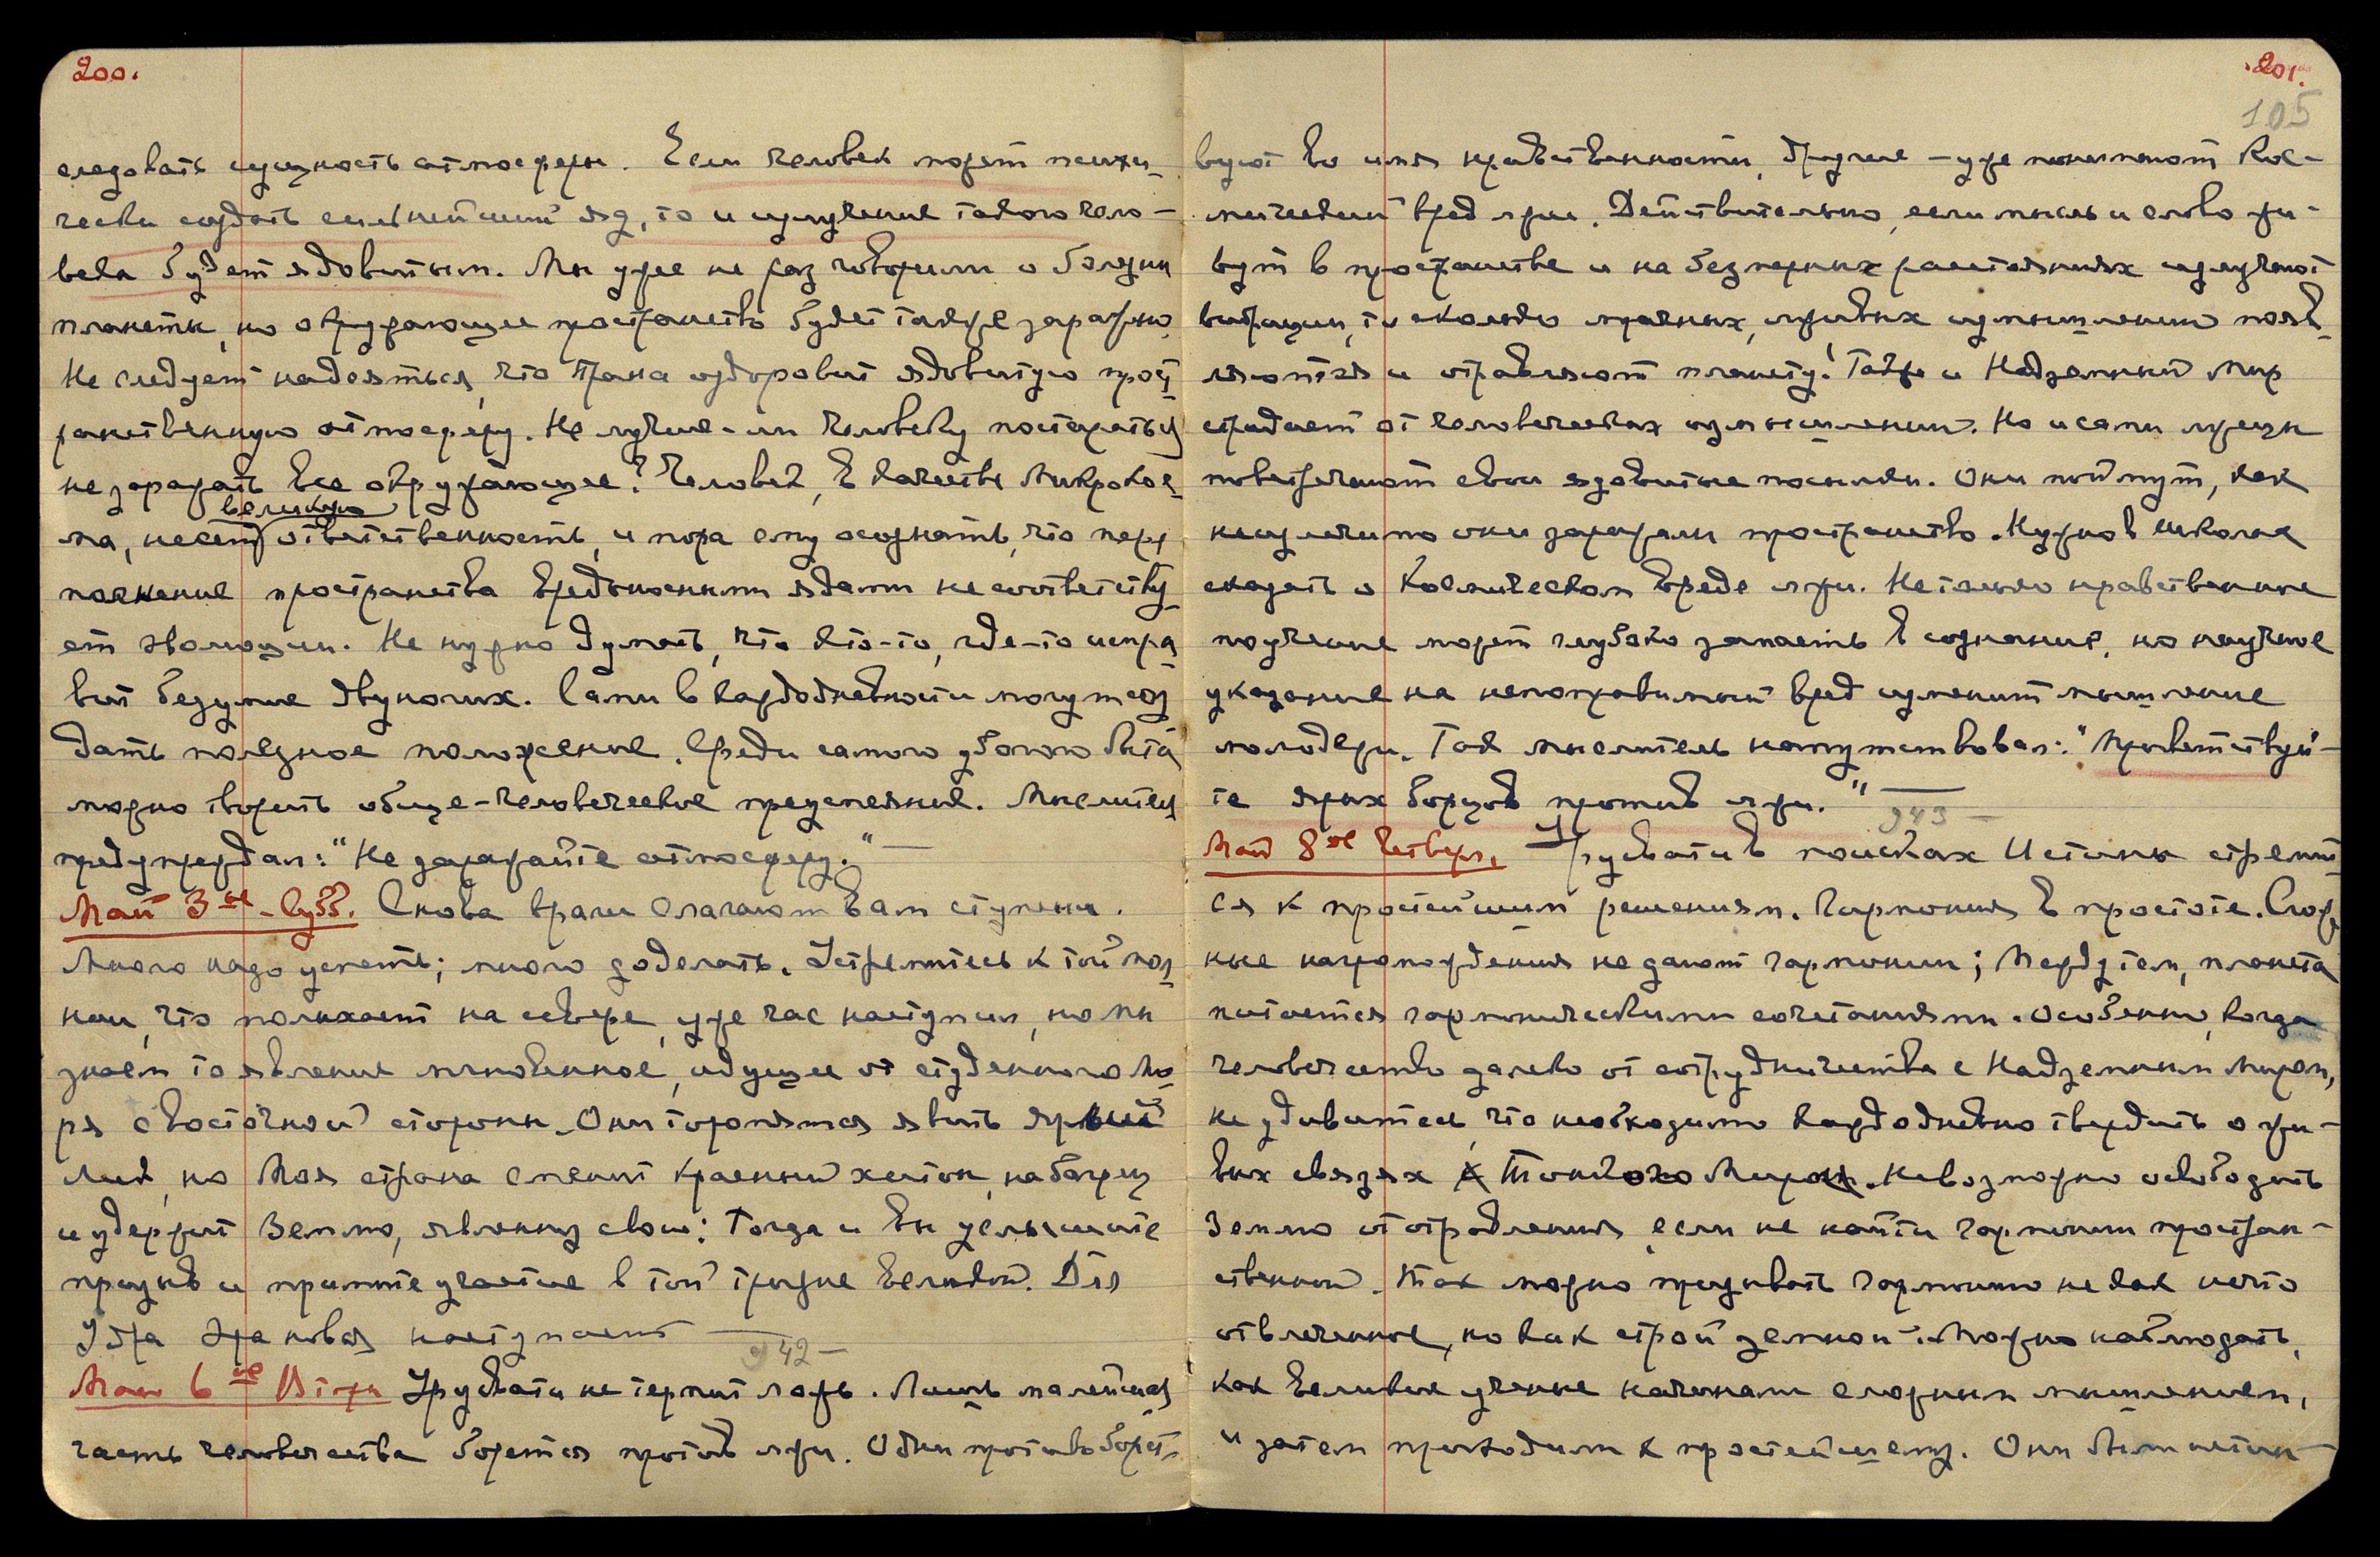 200.
следовать сущность атмосферы. Если человек может психи-
чески создать сильнейший яд, то и излучение такого чело-
века будет ядовитым. Мы уже не раз говорили о болезни
планеты, но окружающее пространство будет также заражено.
Не следует надеяться, что Прана оздоровит ядовитую прост-
ранственную атмосферу. Не лучше-ли человеку постараться
не заражать все окружающее? Человек, в качестве Микрокос-
великую
ма, несет ответственность, и пора ему осознать, что пере
полнение пространства вредоносными ядами не соответству-
ет эволюции. Не нужно думать, что кто-то, где-то испра-
вит безумие двуногих. Сами в каждодневности могут соз
дать полезное положение. Среди самого убогого быта
можно творить обще-человеческое преуспеяние. Мыслитель
предупреждал: "Не заражайте атмосферу." —
Май 3-ье - Субб. Снова враги слагают Вам ступени.
Много надо успеть; много доделать. Устремитесь к той
что полыхает на севере, уже час наступил, но мы
знаем то явление мгновенное, идущее от студенного Мо-
ря с Восточной стороны. Они торопятся явить
лик, но Моя страна сменит красный хитон, на багрец
и удержит Землю, явленну свою: Тогда и Вы услышите
призыв и примите участие в той тризне Великой. Для
Ура Эра новая наступает —
942 —
Май 6-ое Втрн Урусвати не терпит ложь. Лишь малейшая
часть человечества борется против лжи. Одни противоборст-
201.
105
вуют во имя нравственности, другие — уже понимают Кос-
мический вред лжи. Действительно, если мысль и слово жи-
вут в пространстве и на безмерных расстояниях излучают
вибрации, то сколько мрачных, лживых измышлений появ-
ляются и отравляют планету! Также и Надземный Мир
страдает от человеческих измышлений. Но и сами лжецы
повстречают свои ядовитые посылки. Они поймут, как
неизлечимо они заражали пространство. Нужно в школах
сказать о Космическом вреде лжи. Не только нравственное
поучение может глубоко запасть в сознание, но научное
указание на непоправимый вред изменит мышление
молодежи. Так мыслитель напутствовал: "Приветствуй-
те ярых борцов против лжи." —
943 —
Май 8-ое Четверг. Урусвати в поисках Истины стремит
ся к простейшим решениям. Гармония в простоте. Слож-
ные нагромождения не дают гармонии; Между тем, планета
питается гармоническими сочетаниями. Особенно, когда
человечество далеко от сотрудничества с Надземным Миром,
не удивитесь, что необходимо каждодневно твердить о жи-
вых связях Тонкого Мира. Невозможно освободить
Землю от отравления, если не найти гармонии простран-
ственной. Так можно призывать гармонию не как нечто
отвлеченное, но как строй земной. Можно наблюдать,
как великие ученые начинали сложным мышлением,
и затем приходили к простейшему. Они были истин-